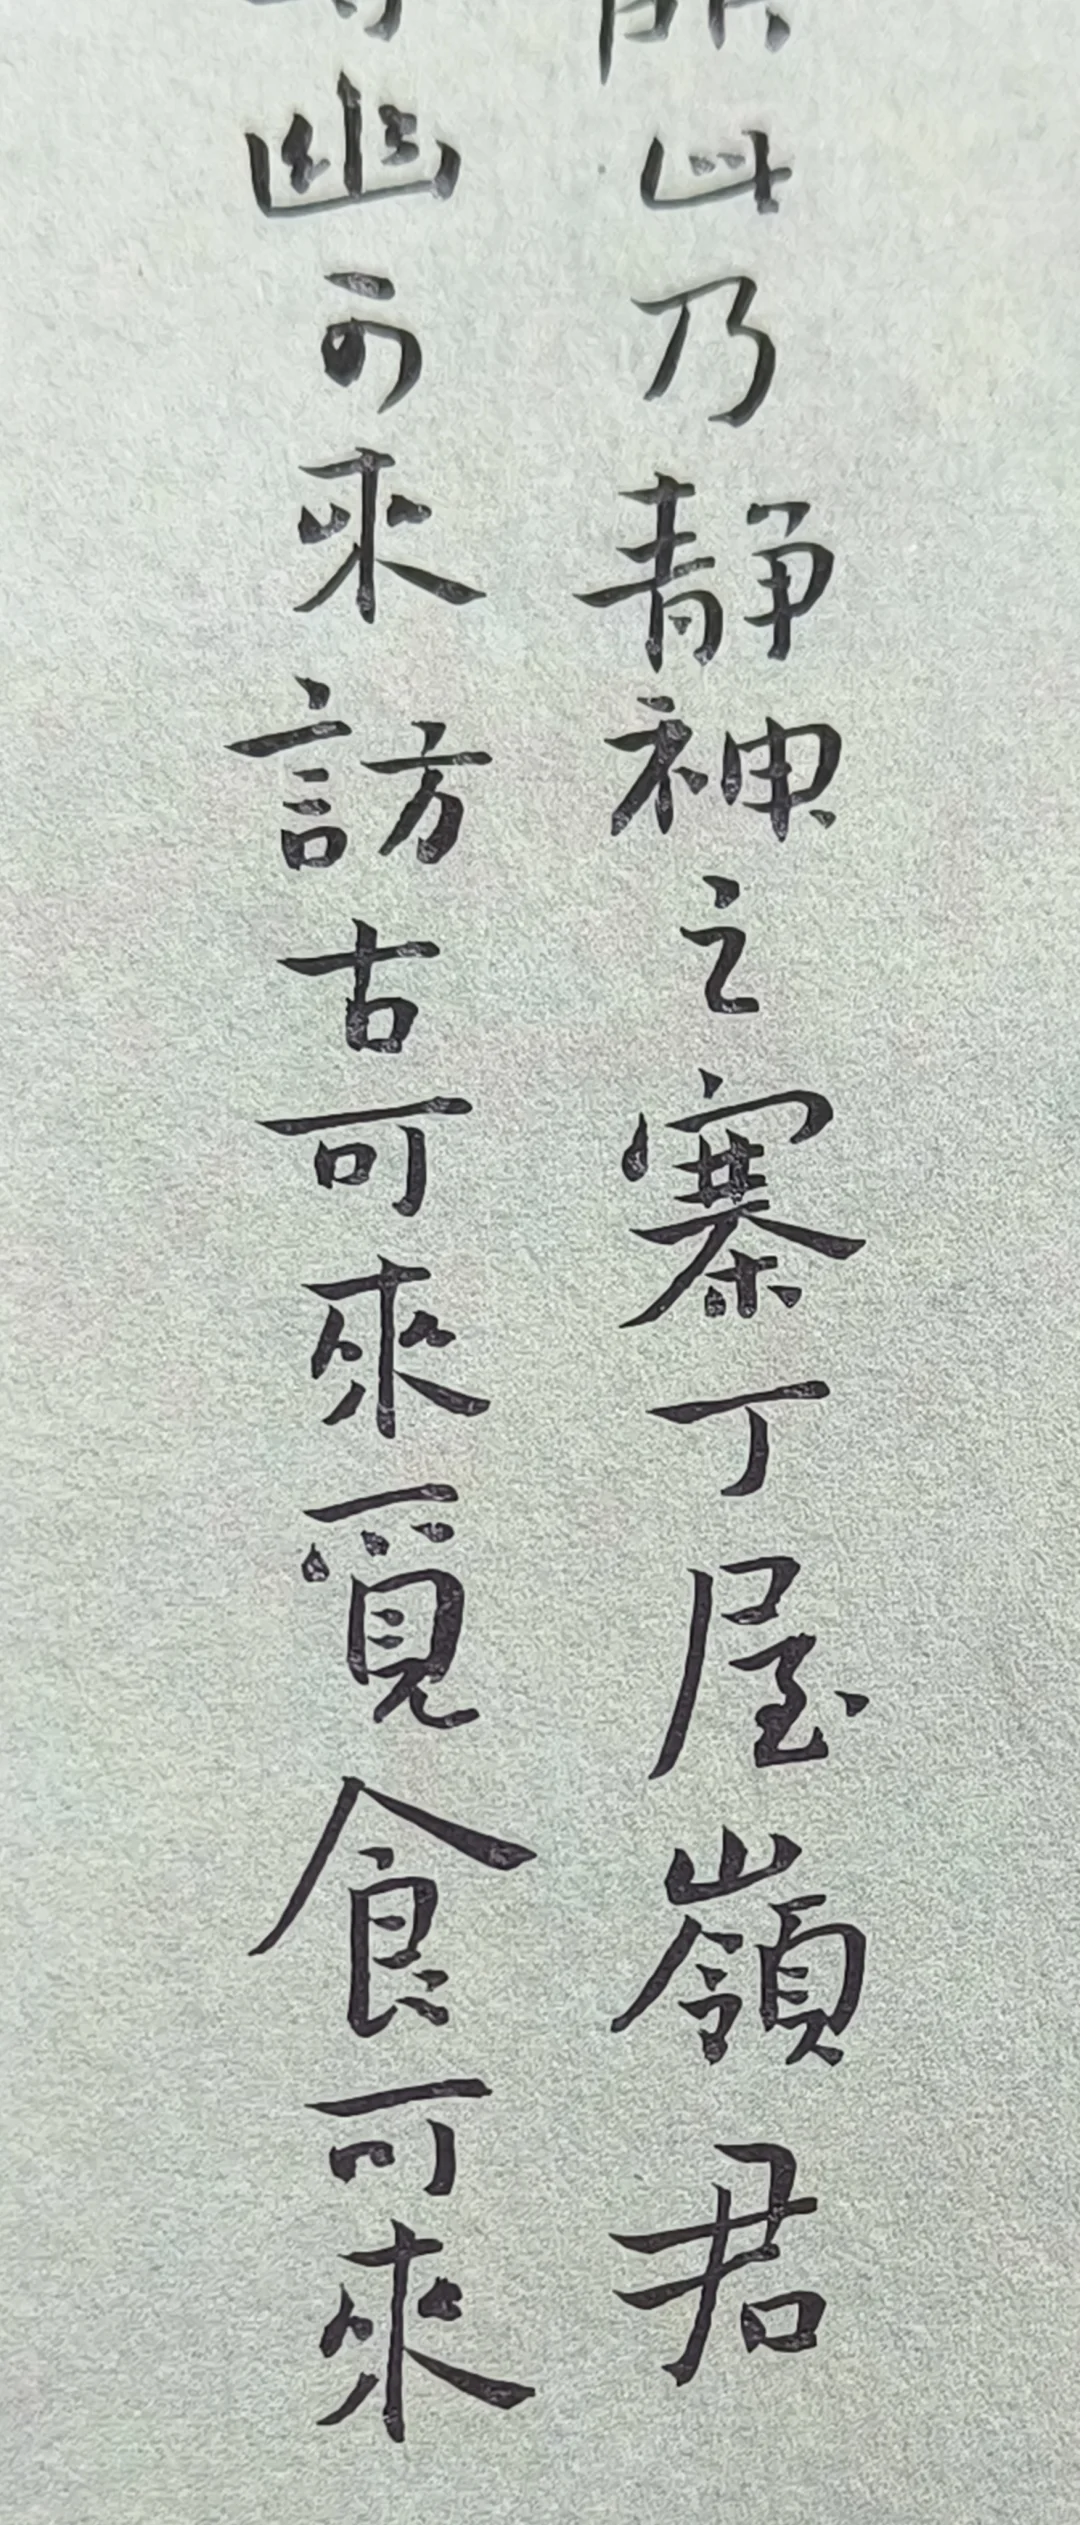 此乃静神之寨丁屋嶺君
幽可來訪古可來覓食可來